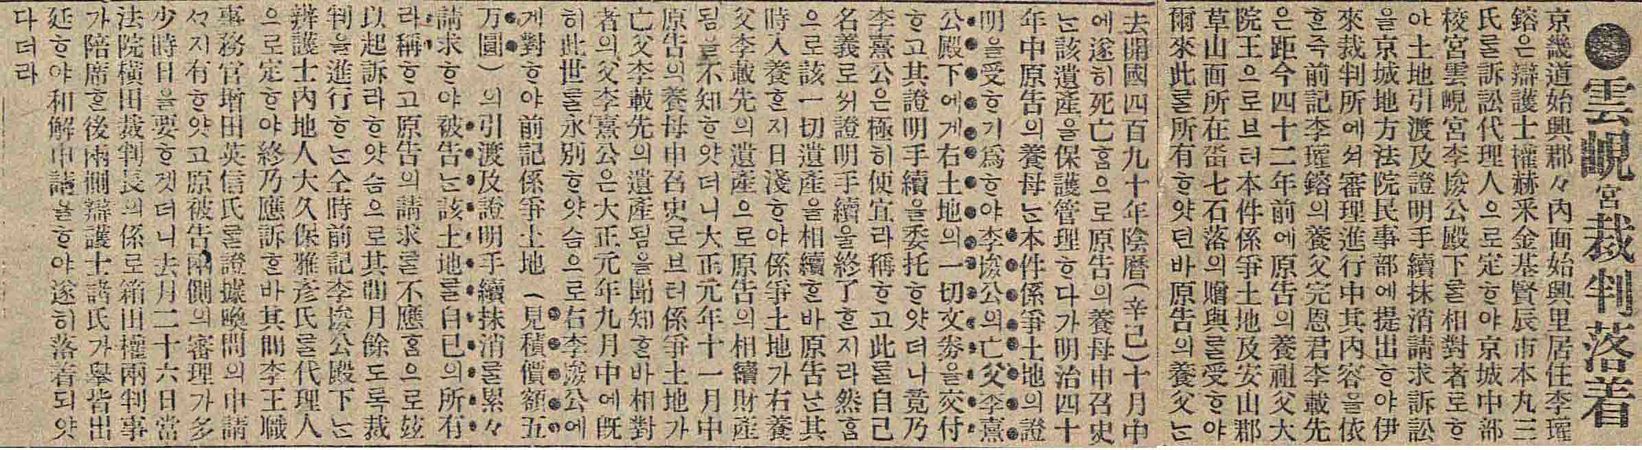 ●雲峴宮裁判落着
京畿道始興郡々內面始興里居住李㻽
鎔은辯護士權赫釆金基賢辰市本丸三
氏를訴訟代理人으로定ᄒᆞ야京城中部
校宮雲峴宮李埈公殿下를相對者로ᄒᆞ
야土地引渡及證明手續抹消請求訴訟
을京城地方法院民事部에提出ᄒᆞ야伊
來裁判所에셔審理進行中其內容을依
ᄒᆞᆫ즉前記李㻽鎔의養父完恩君李載先
은距今四十二年前에原告의養祖父大
院王으로브터本件係爭土地及安山郡
草山面所在畓七石落의贈與를受ᄒᆞ야
爾來此를所有ᄒᆞ얏던바原告의養父ᄂᆞᆫ
去開國四百九十年陰曆(辛已)十月中
에遂히死亡ᄒᆞᆷ으로原告의養母申召史
ᄂᆞᆫ該遺產을保護管理ᄒᆞ다가明治四十
年中原告의養母ᄂᆞᆫ本件係爭土地의證
明을受ᄒᆞ기爲ᄒᆞ야李埈公의亡父李熹
公殿下에게右土地의一切文券을交付
ᄒᆞ고其證明手續을委托ᄒᆞ얏더니竟乃
李熹公은極히便宜라稱ᄒᆞ고此를自己
名義로써證明手續을終了ᄒᆞᆫ지라然ᄒᆞᆷ
으로該一切遺產을相續ᄒᆞᆫ바原告ᄂᆞᆫ其
時入養ᄒᆞᆫ지日淺ᄒᆞ야係爭土地가右養
父李載先의遺產으로原告의相續財產
됨을不知ᄒᆞ얏더니大正元年十一月中
原告의養母申召史로브터係爭土地가
亡父李載先의遺產됨을聞知ᄒᆞᆫ바相對
者의父李熹公은大正元年九月中에旣
히此世를永別ᄒᆞ얏슴으로右李埈公에
게對ᄒᆞ야前記係爭土地(見積價額五
万圜)의引渡及證明手續抹消를累々
請求ᄒᆞ야被告ᄂᆞᆫ該土地를自己의所有
라稱ᄒᆞ고原告의請求를不應ᄒᆞᆷ으로玆
以起訴라ᄒᆞ얏슴으로其間月餘도록裁
判을進行ᄒᆞᄂᆞᆫ仝時前記李埈公殿下ᄂᆞᆫ
辯護士內地人大久保雅彥氏를代理人
으로定ᄒᆞ야終乃應訴ᄒᆞᆫ바其間李王職
事務官增田英信氏를證據喚問의申請
ᄭᆞ지有ᄒᆞ얏고原被告兩側의審理가多
少時日을要ᄒᆞ겟더니去月二十六日當
法院橫田裁判長의係로箱田權兩判事
가陪席ᄒᆞᆫ後兩側辯護士諸氏가擧皆出
延ᄒᆞ야和解申請을ᄒᆞ야遂히落着되얏
다더라